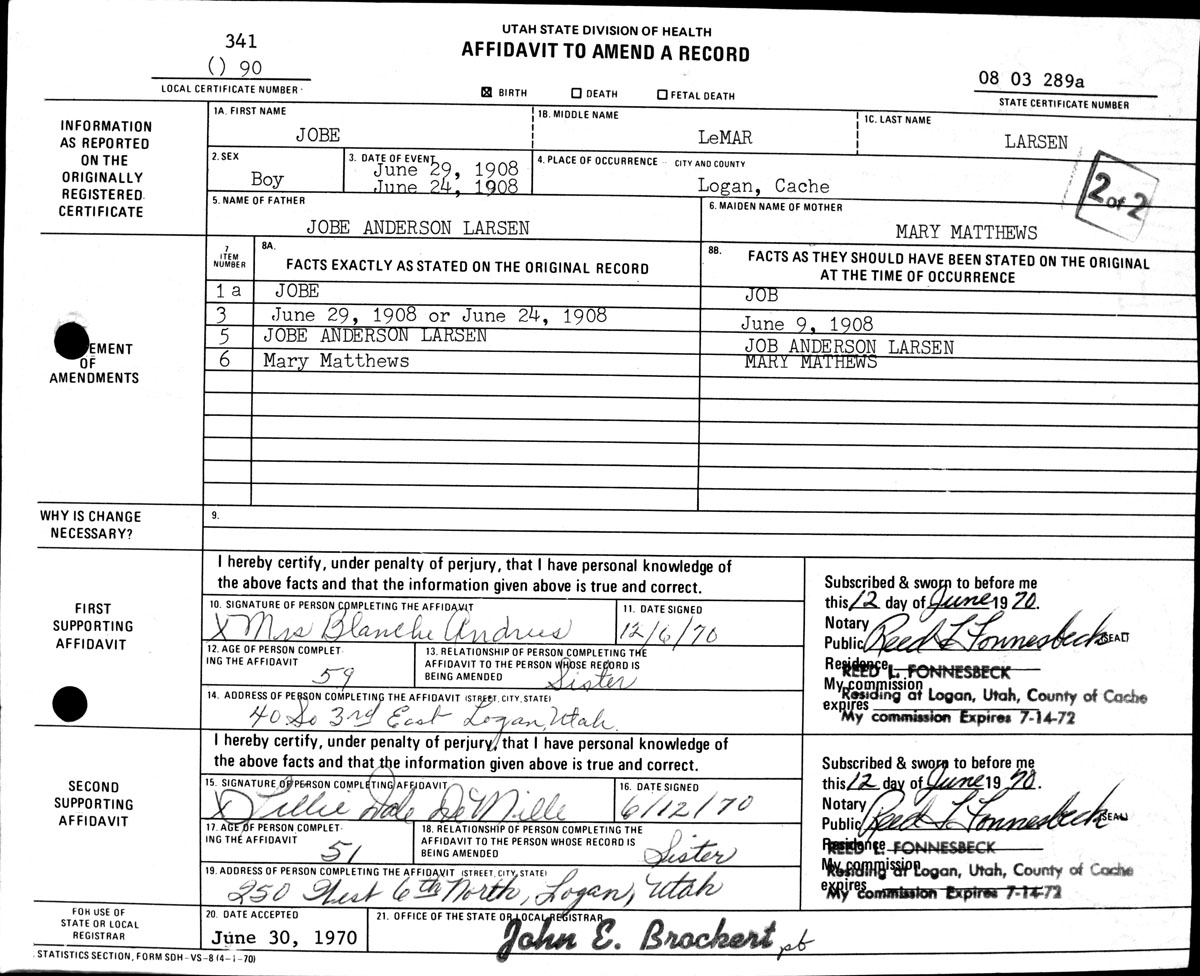 UTAH STATE DIVISION OF HEALTH
AFFIDAVIT TO AMEND A RECORD
341
() 90
LOCAL CERTIFICATE NUMBER
☒ BIRTH ☐ DEATH ☐ FETAL DEATH
08 03 289a
STATE CERTIFICATE NUMBER
INFORMATION
AS REPORTED
ON THE
ORIGINALLY
REGISTERED
CERTIFICATE
1A. FIRST NAME
JOBE
1B. MIDDLE NAME
LeMAR
1C. LAST NAME
LARSEN
2. SEX
Boy
3. DATE OF EVENT
June 29, 1908
June 24, 1908
4. PLACE OF OCCURRENCE - CITY AND COUNTY
Logan, Cache
2 of 2
5. NAME OF FATHER
JOBE ANDERSON LARSEN
6. MAIDEN NAME OF MOTHER
MARY MATTHEWS
EMENT
OF
AMENDMENTS
7
ITEM
NUMBER
8A.
FACTS EXACTLY AS STATED ON THE ORIGINAL RECORD
8B. FACTS AS THEY SHOULD HAVE BEEN STATED ON THE ORIGINAL
AT THE TIME OF OCCURRENCE
1a JOBE JOB
3 June 29, 1908 or June 24, 1908 June 9, 1908
5 JOBE ANDERSON LARSEN JOB ANDERSON LARSEN
6 Mary Matthews MARY MATHEWS
WHY IS CHANGE
NECESSARY?
9.
FIRST
SUPPORTING
AFFIDAVIT
I hereby certify, under penalty of perjury, that I have personal knowledge of
the above facts and that the information given above is true and correct.
10. SIGNATURE OF PERSON COMPLETING THE AFFIDAVIT
X Mrs Blanche Andrus
11. DATE SIGNED
12/6/70
12. AGE OF PERSON COMPLET-
ING THE AFFIDAVIT
59
13. RELATIONSHIP OF PERSON COMPLETING THE
AFFIDAVIT TO THE PERSON WHOSE RECORD IS
BEING AMENDED
Sister
14. ADDRESS OF PERSON COMPLETING THE AFFIDAVIT (STREET, CITY, STATE)
40 So 3rd East Logan, Utah.
Subscribed & sworn to before me
this 12 day of June 19 70.
Notary
Public Reed L Fonnesbeck (SEAL)
Residence
REED L. FONNESBECK
My commission
Residing at Logan, Utah, County of Cache
expires
My commission Expires 7-14-72
SECOND
SUPPORTING
AFFIDAVIT
I hereby certify, under penalty of perjury, that I have personal knowledge of
the above facts and that the information given above is true and correct.
15. SIGNATURE OF PERSON COMPLETING AFFIDAVIT
X Lillie Dale DeMille
16. DATE SIGNED
6/12/70
17. AGE OF PERSON COMPLET-
ING THE AFFIDAVIT
51
18. RELATIONSHIP OF PERSON COMPLETING THE
AFFIDAVIT TO THE PERSON WHOSE RECORD IS
BEING AMENDED
Sister
19. ADDRESS OF PERSON COMPLETING THE AFFIDAVIT (STREET, CITY, STATE)
250 West 6th North, Logan, Utah
Subscribed & sworn to before me
this 12 day of June 19 70.
Notary
Public Reed L Fonnesbeck (SEAL)
Residence
REED L. FONNESBECK
My commission
Residing at Logan, Utah, County of Cache
expires
My commission Expires 7-14-72
FOR USE OF
STATE OR LOCAL
REGISTRAR
20. DATE ACCEPTED
June 30, 1970
21. OFFICE OF THE STATE OR LOCAL REGISTRAR
John E. Brockert pb
STATISTICS SECTION, FORM SDH-VS-8 (4-1-70)